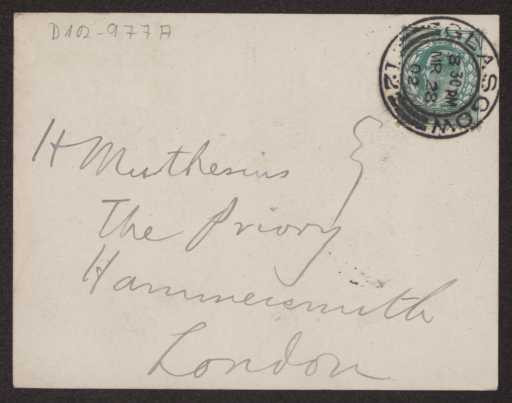 D102-977A
GLASGOW
8 30 PM
MR 28
02
12
H Muthesius Esq
The Priory
Hammersmith
London